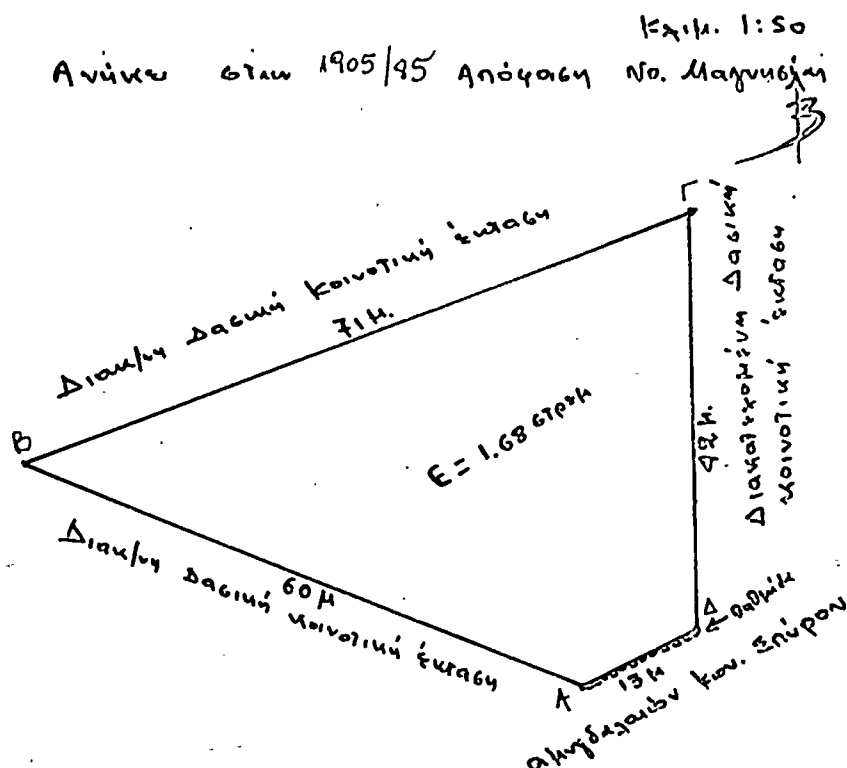 Κλιμ. 1:50
Ανήκει στην 1905/85 Απόφαση Νο. Μαγνησίας
Διακ/νη Δασική Κοινοτική έκταση
71 μ.
Β
Ε = 1.68 στρεμ
42 μ.
Διακατεχομένη Δασική
κοινοτική έκταση
Διακ/νη Δασική κοινοτική έκταση
60 μ
Δ
Α
13 μ
αμυγδαλεών κοιν. Σπύρον